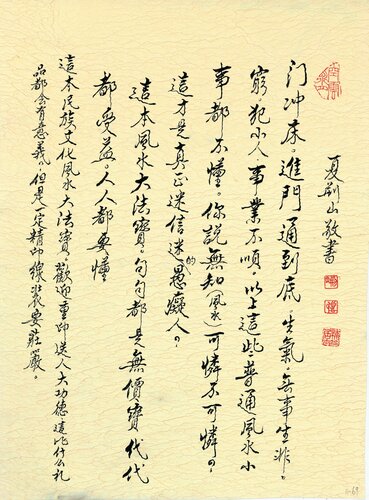 夏荆山敬書
门冲床。進門通到底。生氣。無事生非。
窮。犯小人事業不順。以上這些普通風水小
事都不懂。你說無知(風水)可憐不可憐。
這才是真正迷信迷的愚癡人。
這本風水大法寶。句句都是無價寶代代
都受益。人人都要懂
這本民族文化風水大法寶。歡迎重印送人大功德這比什么礼
品都会有意義。但是一定精印線裝要莊嚴。